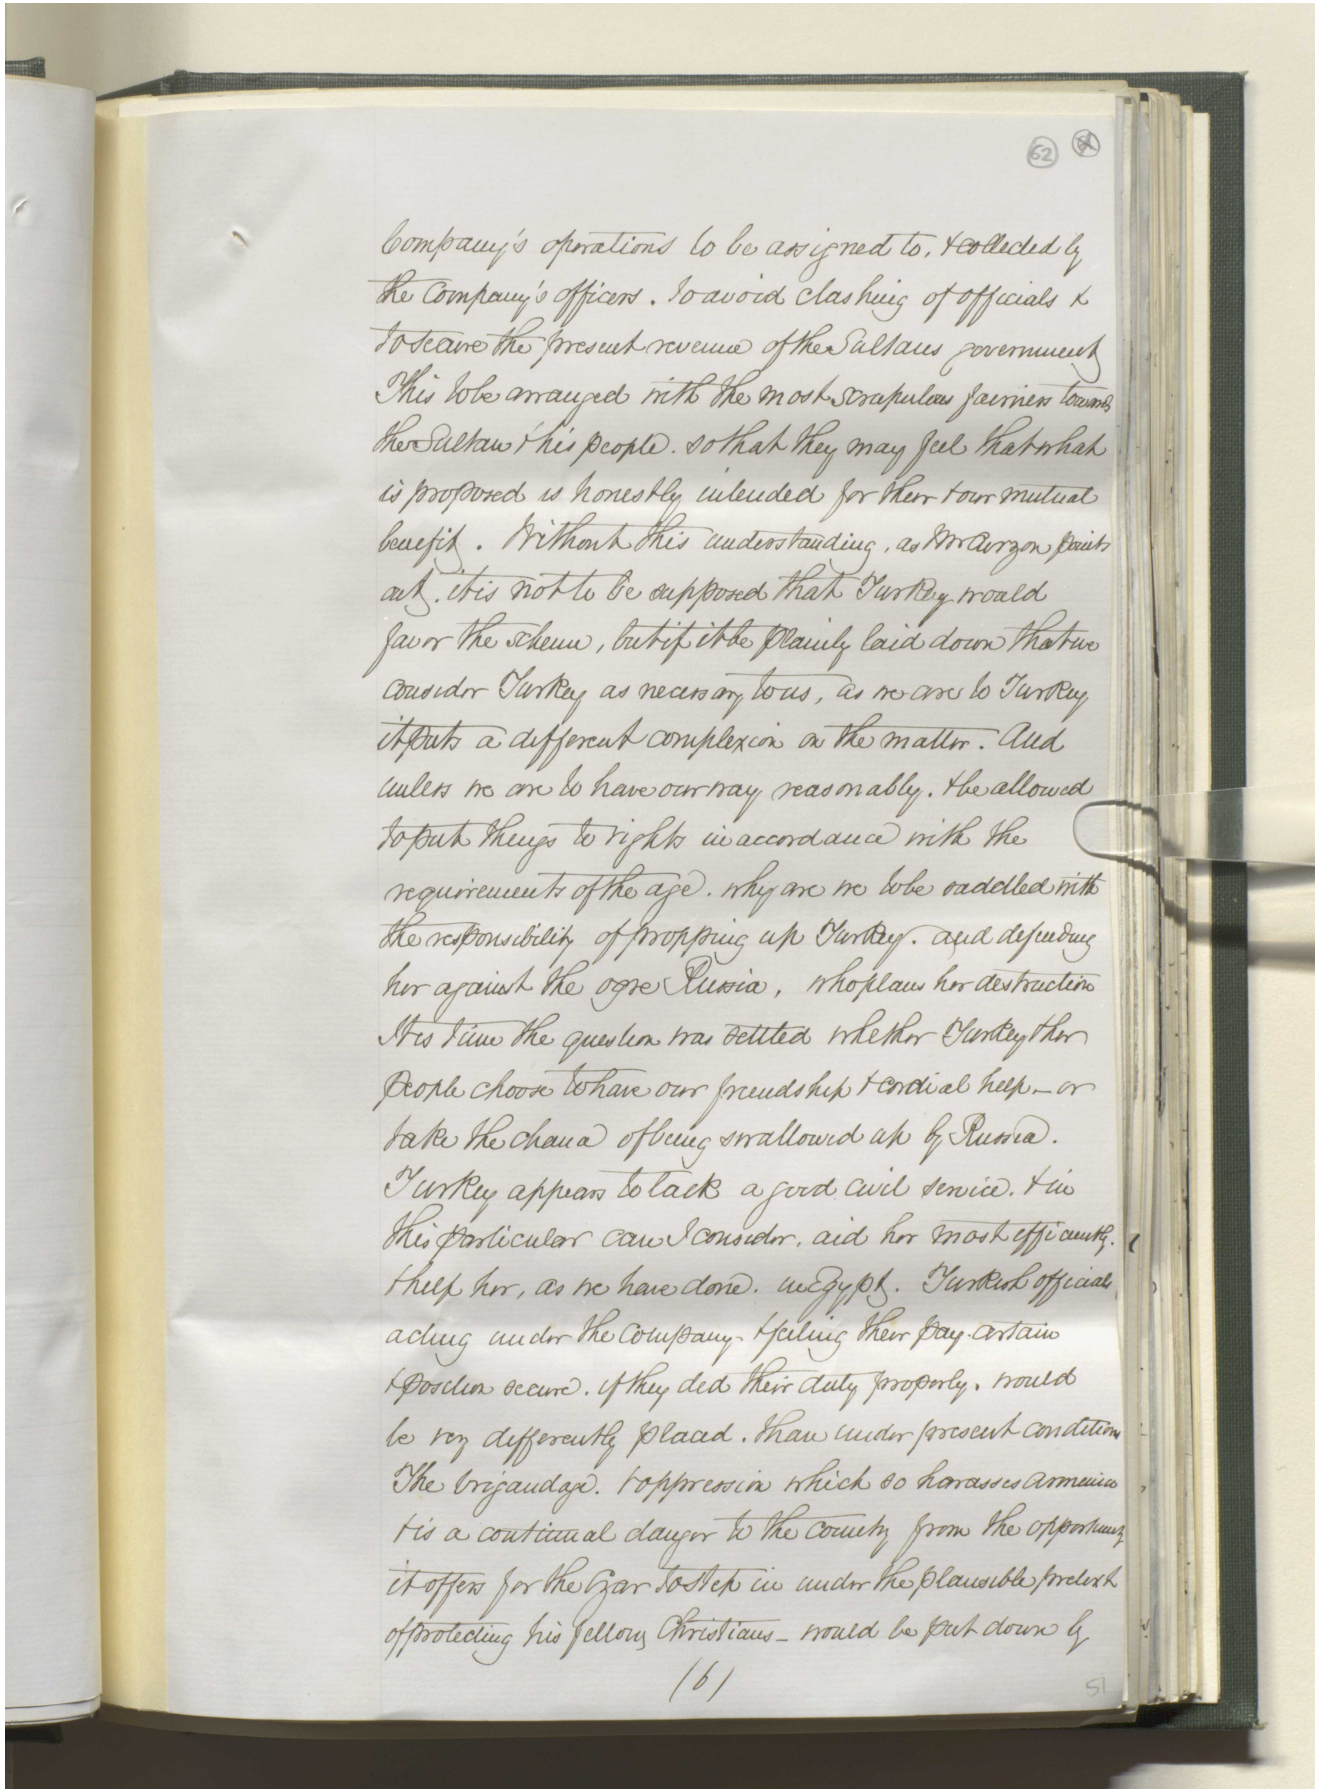 62
Company's operations to be assigned to, & collected by
the Company's officers. To avoid clashing of officials &
to secure the present revenue of the Sultans government
This to be arranged with the most scrupulous fairness towards
the Sultan & his people. so that they may feel that what
is proposed is honestly intended for their & our mutual
benefit. Without this understanding, as Mr Curzon points
out, it is not to be supposed that Turkey would
favor the scheme, but if it be plainly laid down that we
consider Turkey as necessary to us, as we are to Turkey
it puts a different complexion on the matter. And
unless we are to have our way reasonably. & be allowed
to put things to rights in accordance with the
requirements of the age. why are we to be saddled with
the responsibility of propping up Turkey. and defending
her against the ogre Russia, who plans her destruction
It is time the question was settled whether Turkey & her
people choose to have our friendship & cordial help - or
take the chance of being swallowed up by Russia.
Turkey appears to lack a good civil service. & in
this particular can I consider, aid her most efficiently.
& help her, as we have done. in Egypt. Turkish officials
acting under the Company - & feeling their pay certain
& position secure. if they did their duty properly. would
be very differently placed. than under present conditions
The brigandage. & oppression which so harasses Armenia
& is a continual danger to the country from the opportunity
it offers for the Czar to step in under the plausible pretext
of protecting his fellow Christians - would be put down by
(6)
51